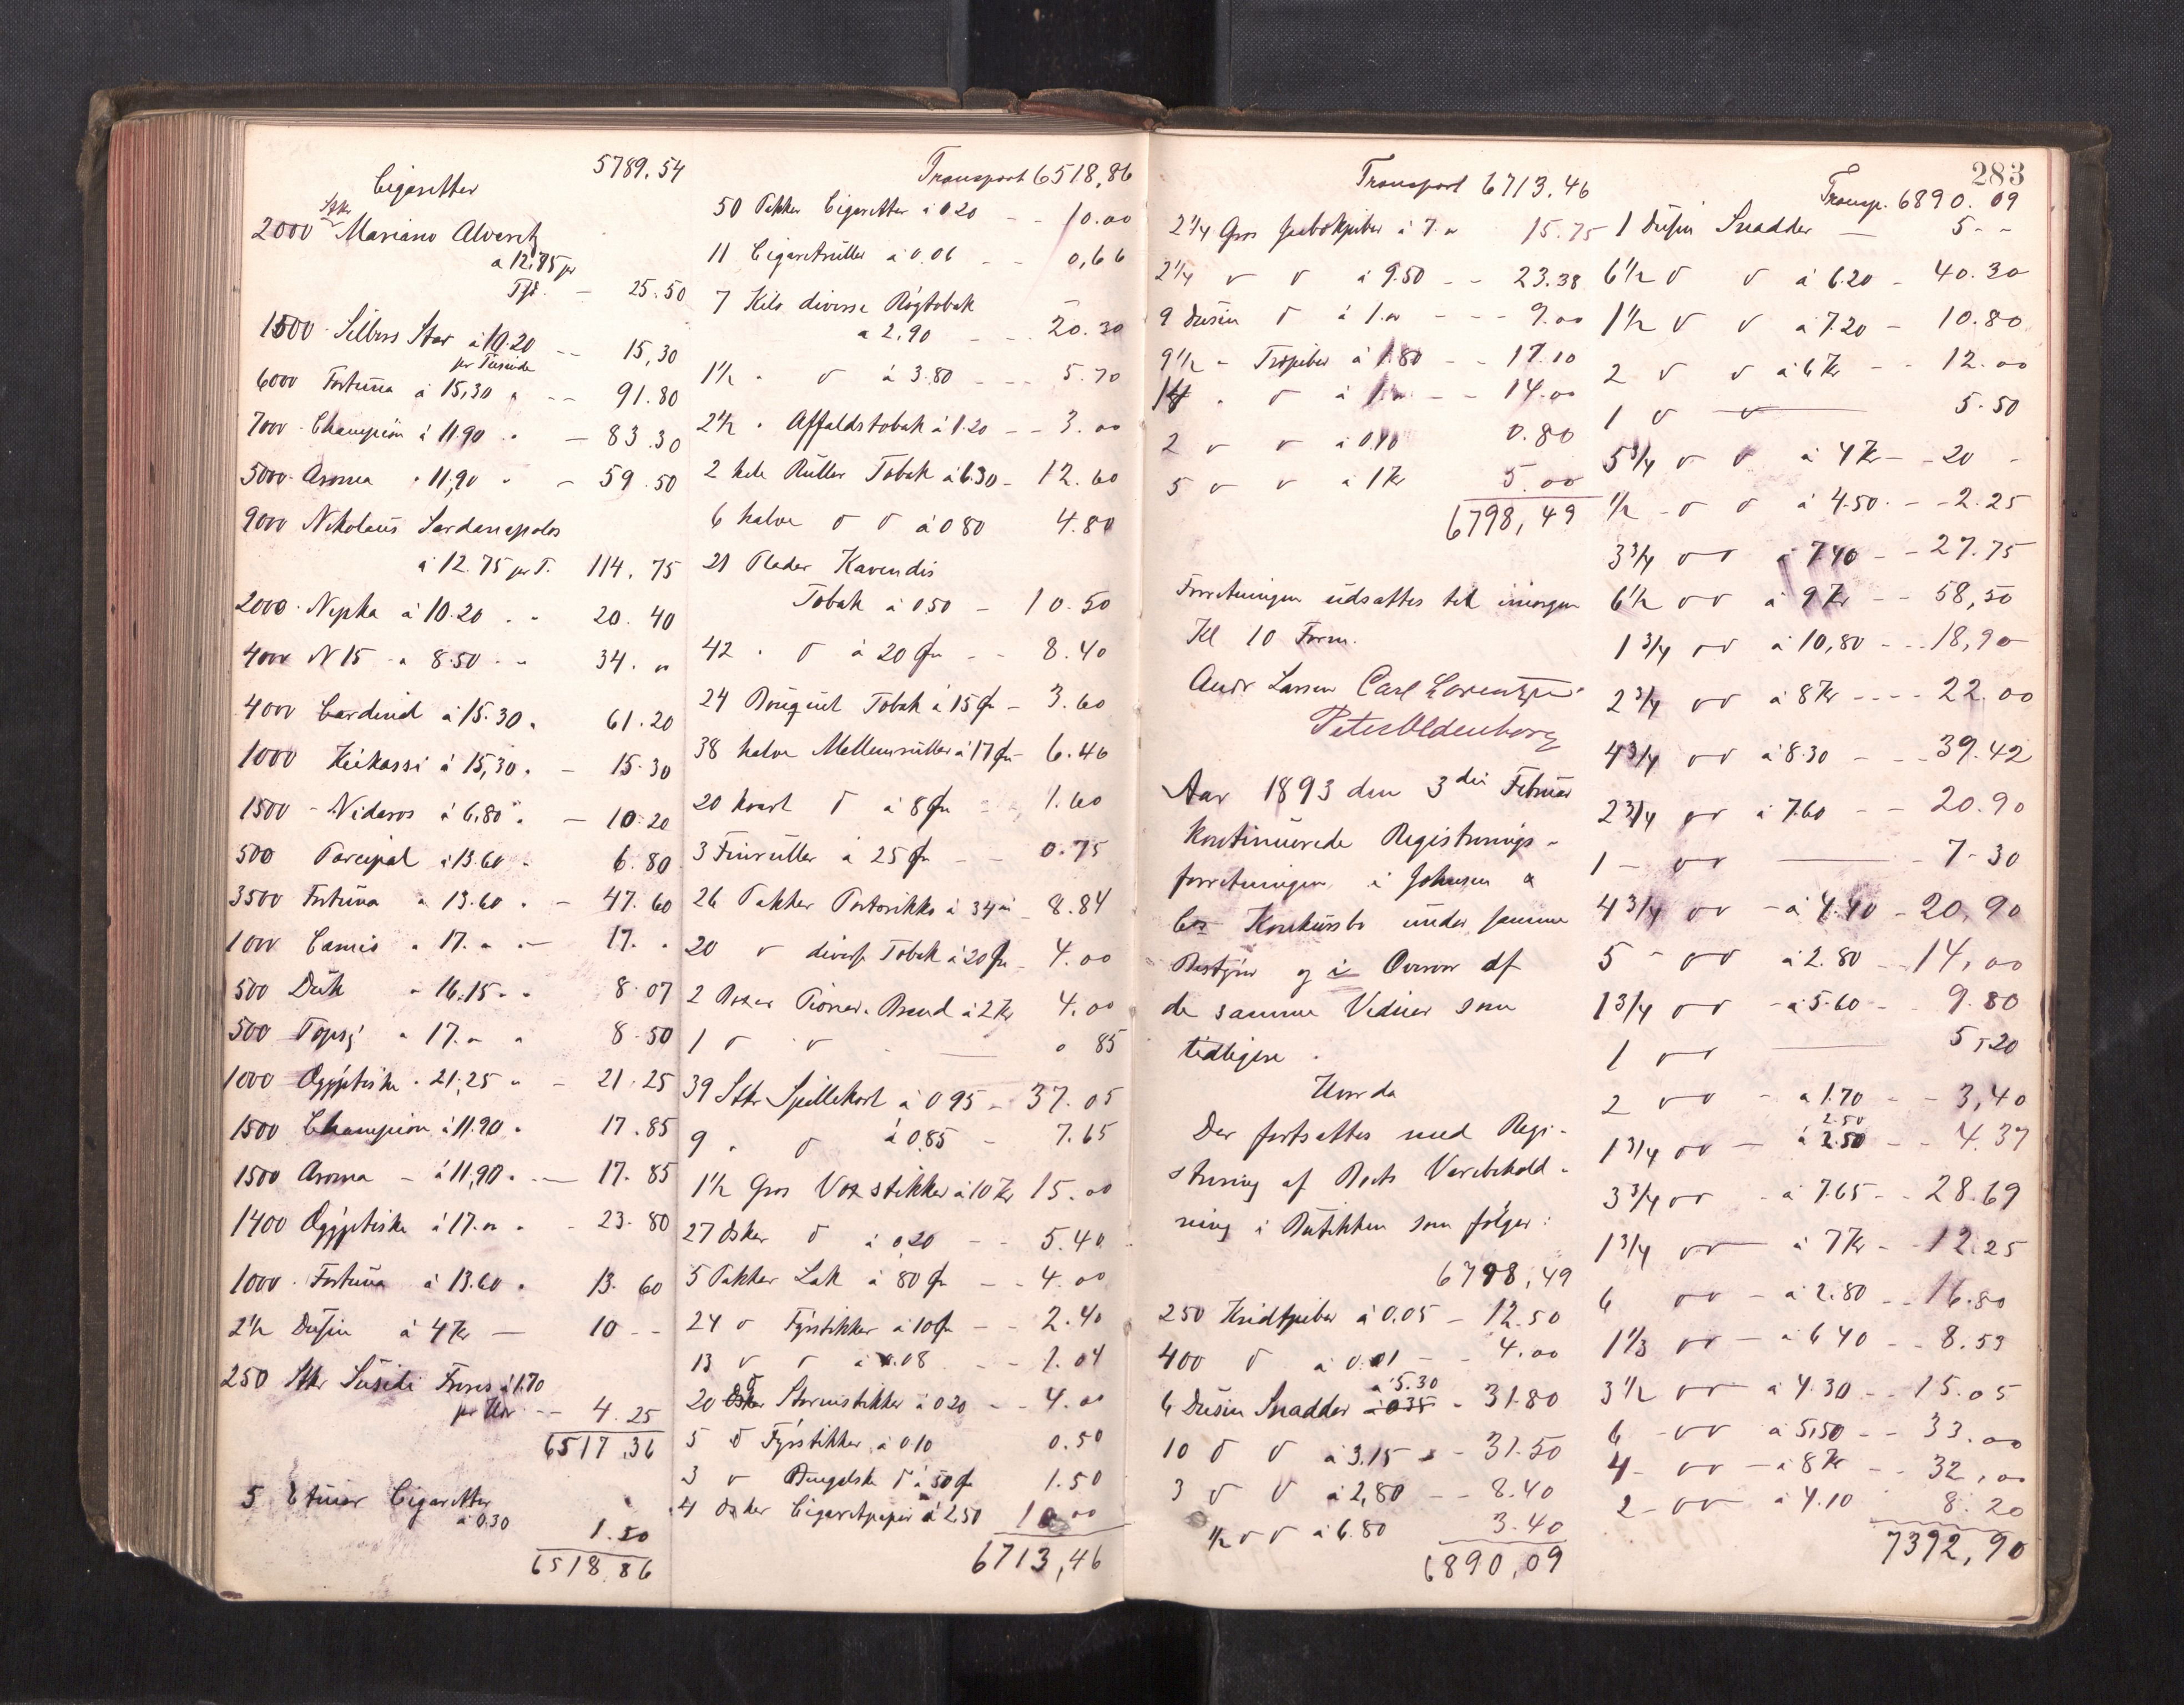 5789.54
Cigaretter
2000 Stkr Mariano Alvaretz
a 12.75 pr
Tsd. — 25.50
1500 Silbers Star à 10.20 -- 15,30
pr Tusinde
6000 Fortuna à 15,30 " -- 91.80
7000 Champion à 11.90 " — 83.30
5000 Aroma " 11,90 " - 59.50
9000 Nikolaus Sardanapolos
à 12.75 pr T. 114.75
2000 Nepka à 10.20 " " 20.40
4000 N 15 - a 8.50 " " 34. "
4000 Cardinal à 15.30 " 61.20
1000 Keikassi à 15,30 " - 15.30
1500 - Nidaros à 6,80 " — 10.20
500 Parcipal à 13.60 " 6.80
3500 Fortuna a 13.60 " — 47.60
1000 Camis a 17. " " — 17. "
500 Duk " 16.15 " " 8.07
500 Topsj " 17. " " 8.50
1000 Ægyptiske " 21,25 " - 21.25
1500 Champion à 11.90 " 17.85
1500 Aroma - à 11,90 " — 17.85
1400 Ægyptiske à 17. " " - 23.80
1000 Fortuna à 13.60 " 13.60
2½ Dusin à 4 Kr — 10 - -
250 Stkr Susidi Freres à 1.70
pr Hdr -- 4.25
6517.36
5 Etuier Cigaretter
à 0.30 1.50
6518.86
Transport 6518,86
50 Pakker Cigaretter à 0.20 - - 10.00
11 Cigaretruller à 0.06 - - 0,66
7 Kilo diverse Røgtobak
a 2,90 - - - 20.30
1½ " v à 3.80 - - - 5.70
2½ " Affaldstobak à 1.20 - - 3.00
2 hele Ruller Tobak à 6.30 - 12.60
6 halve v v à 0 80 4.80
21 Plader Kavendis
Tobak à 0,50 - 10.50
42 " v à 20 Ør - - 8.40
24 Bouquet Tobak à 15 Ør - 3.60
38 halve Mellemruller à 17 Ør - 6.46
20 kvart v à 8 Ør - - 1.60
3 Finruller à 25 Ør - - 0.75
26 Pakker Portorikko à 34 Ør - 8.84
20 v diverse Tobak à 20 Ør - 4.00
2 Æsker Pioner Brand à 2 Kr 4.00
1 v v — 0 85
39 Stkr Spillekort à 0 95 - 37.05
9 " v à 0.85 - 7.65
1½ Gros Voxstikker à 10 Kr 15.00
27 Æsker v à 0,20 - - 5.40
5 Pakker Lak à 80 Ør - - 4.00
24 v Fyrstikker à 10 Ør - - 2.40
13 v v à 0.08 - - 1.04
20 Æsker Stormstikker à 0 20 - - 4.00
5 v Fyrstikker à 0.10 0.50
3 v Bengalske v à 50 Ør 1.50
4 Æsker Cigaretpapir à 2.50 10.00
6713,46
Transport 6713.46
2¼ Gros à 7. " 15.75
2¼ v v à 9.50 - - 23.38
9 Dusin v à 1. " - - - 9.00
9½ - Træpiber à 1.80 - - 17.10
14 " v à 1. " - - 14.00
2 v v à 0,40 0.80
5 v v à 1 Kr 5.00
6798,49
Forretningen udsattes til imorgen
Kl 10 Form.
Andr Larsen Carl Lorentzen
Peter Oldenborg
Aar 1893 den 3die Februar
kontinuerede Registrerings-
forretningen i Johnsen &
Co's Konkursbo under samme
Bestyrer og i Overvær af
de samme Vidner som
tidligere.
Hvorda
Der fortsattes med Regi-
strering af Boets Varebehold-
ning i Butikken som følger:
6798,49
250 Kridtpiber à 0.05 - 12.50
400 v à 0.01 - - 4.00
6 Dusin Snadder à 5.30 - 31.80
10 v v à 3.15 - - 31.50
3 v v à 2,80 - - 8.40
½ v v à 6.80 3.40
6890,09
283
Transp. 6890.09
1 Dusin Snadder — 5 - -
6½ v v à 6.20 - 40.30
1½ v v à 7.20 - 10.80
2 v v à 6 Kr - - 12.00
1 v v — 5.50
5¾ v v à 4 Kr - - 20 -
½ - v v à 4.50 - - - 2.25
3¾ v v à 7.40 - - 27.75
6½ v v à 9 Kr - - 58,50
1¾ v v à 10,80 - - - 18,90
2¾ v v à 8 Kr - - - - 22.00
4¾ v v à 8.30 - - - 39.42
2¾ v v à 7.60 - - 20.90
1 — v v — - 7.30
4¾ v v - à 4.40 - 20,90
5 - v v à 2.80 - - 14,00
1¾ v v - à 5.60 - 9.80
1 v v — 5,20
2 v v - a 1.70 - - 3,40
1¾ v v — à 2.50 2.50 - - 4.37
3¾ v v - à 7.65 - - 28.69
1¾ v v — à 7 Kr - - 12.25
6 v v - à 2.80 - - 16.80
1⅓ v v — à 6 40 - - 8.53
3½ v v - à 4.30 - - 15.05
6 - v v à 5,50 - - 33.00
4 - v v — à 8 Kr - - 32,00
2 - v v à 4.10 8.20
7392,90